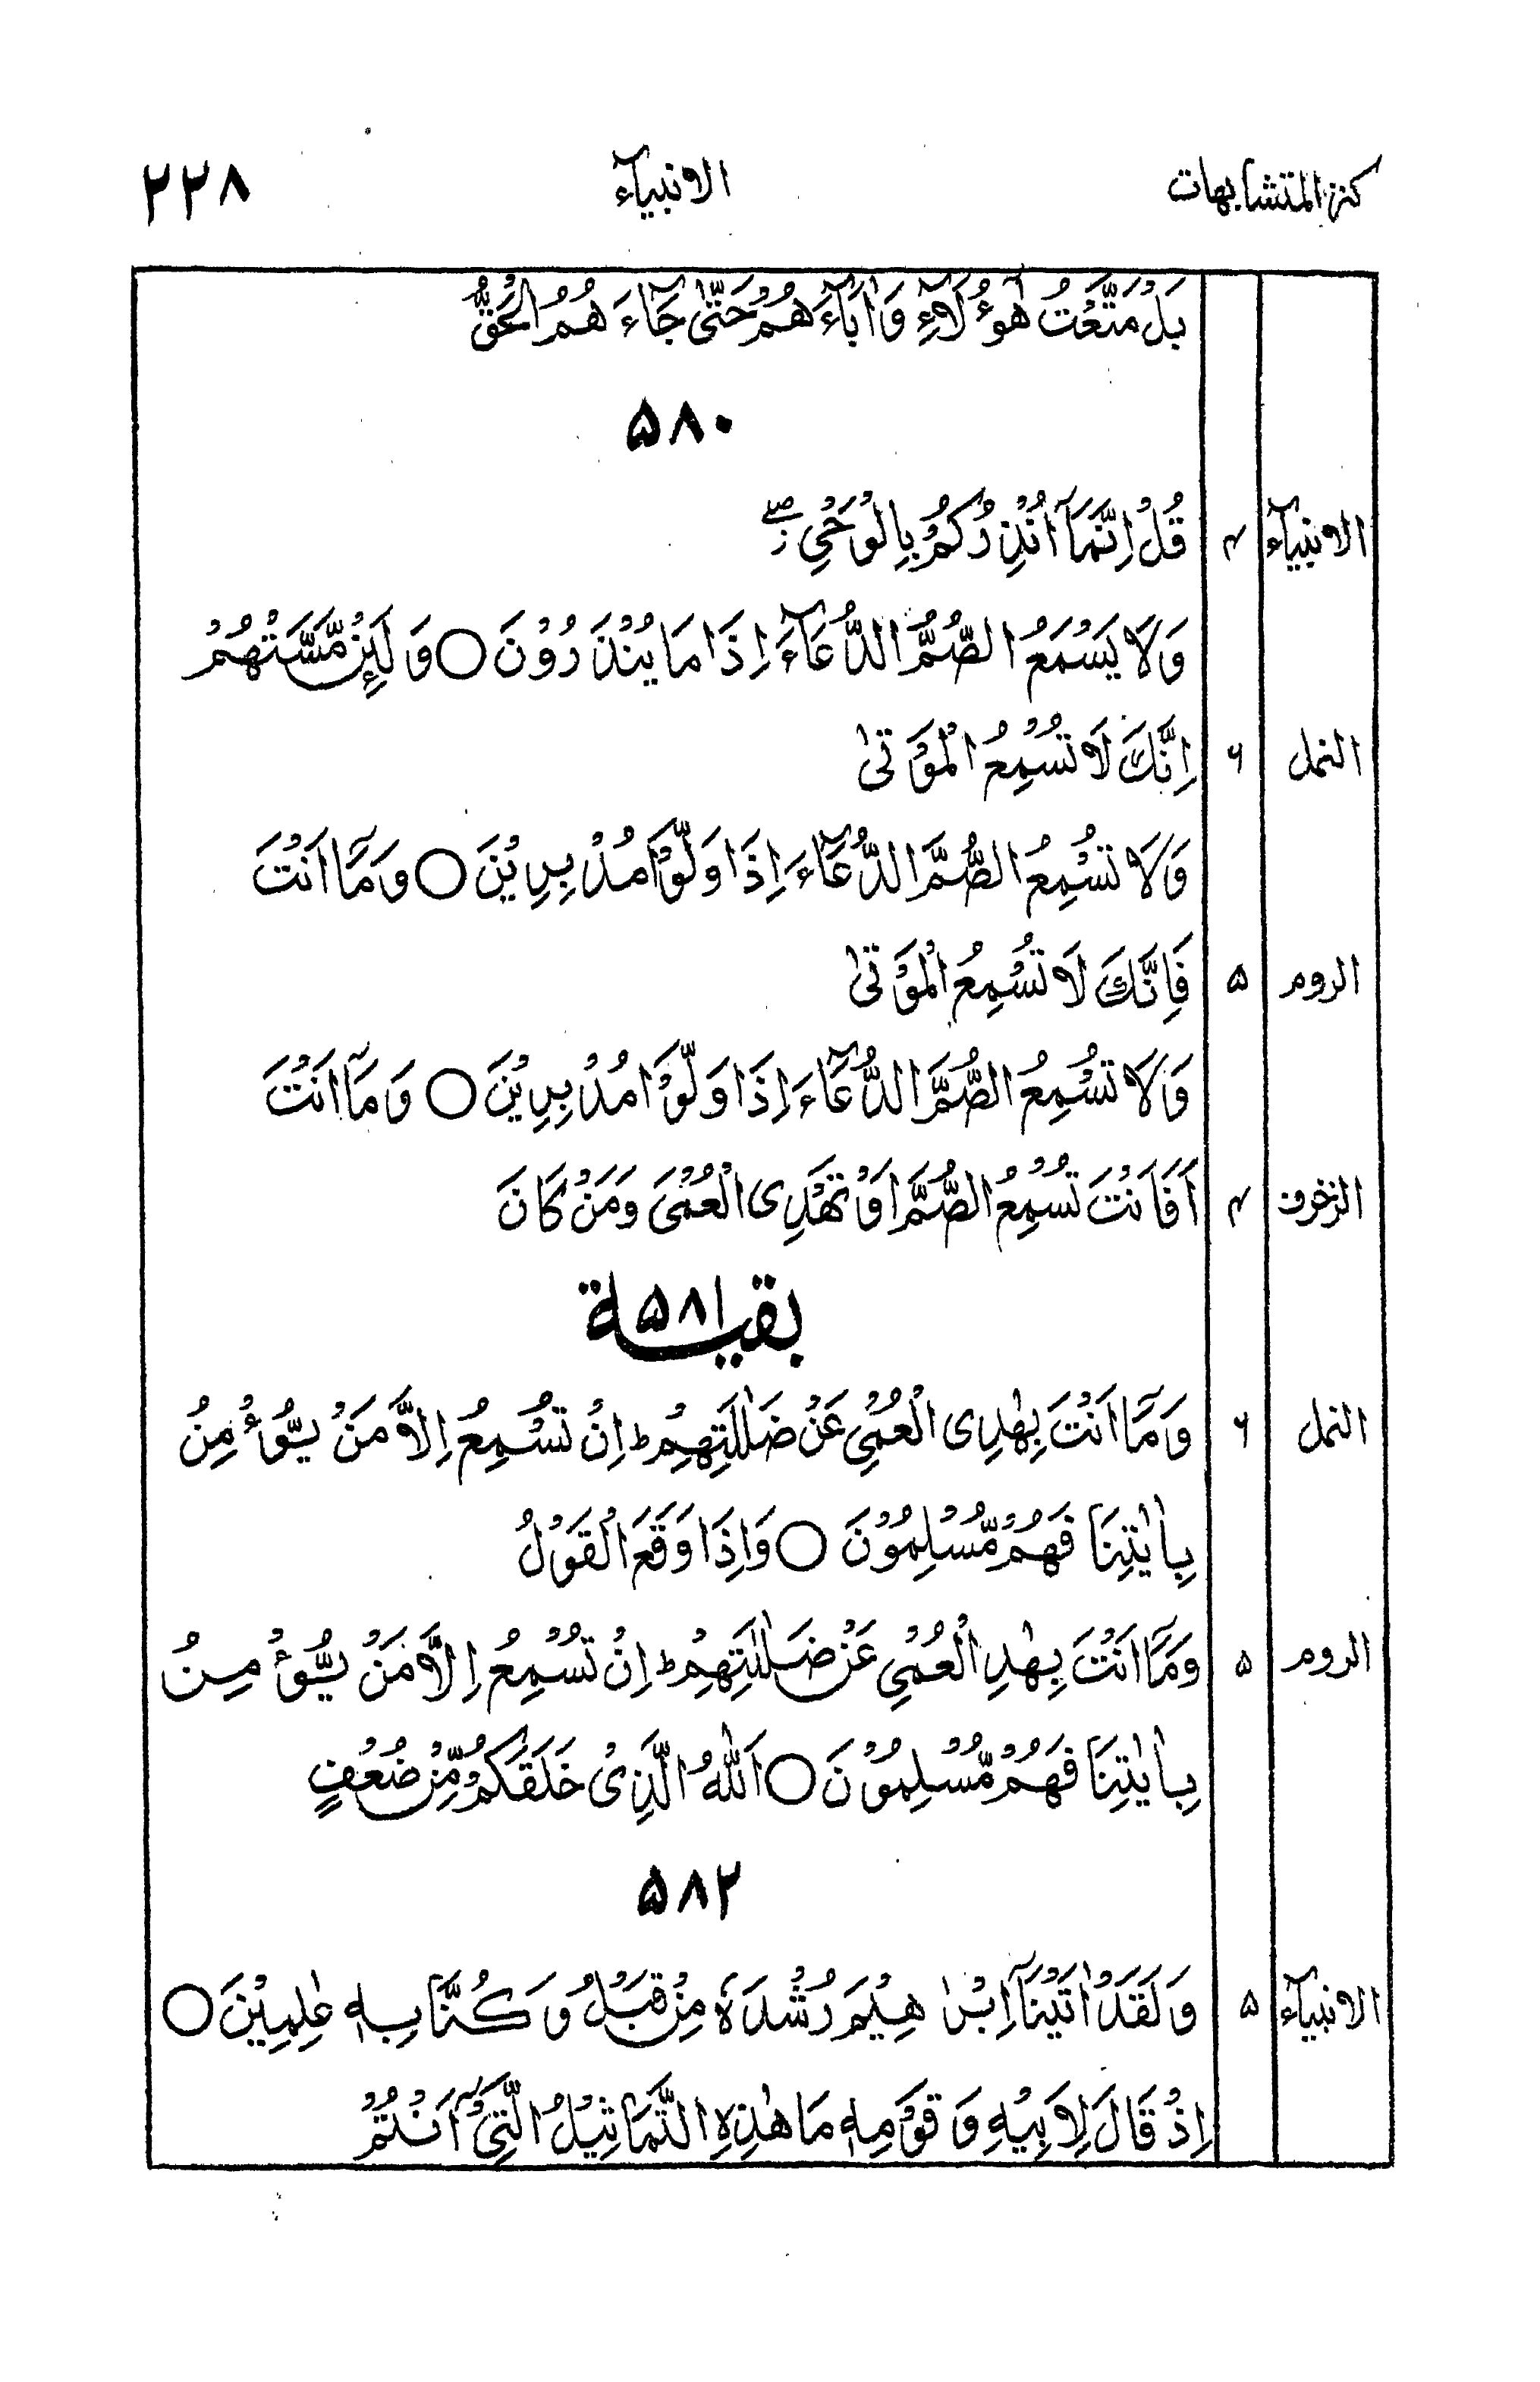 كنز المتشابهات الانبيآء ٢٢٨
بَلْ مَتَّعْتُ هٰٓؤُلَآءِ وَاٰبَآءَهُمْ حَتّٰى جَآءَهُمُ الْحَقُّ
۵۸۰
الانبيآء ۴ قُلْ اِنَّمَآ اُنْذِرُكُمْ بِالْوَحْيِ ۖز
وَلَا يَسْمَعُ الصُّمُّ الدُّعَآءَ اِذَا مَا يُنْذَرُوْنَ ○ وَلَئِنْ مَّسَّتْهُمْ
النمل ۶ اِنَّكَ لَا تُسْمِعُ الْمَوْتٰى
وَلَا تُسْمِعُ الصُّمَّ الدُّعَآءَ اِذَا وَلَّوْا مُدْبِرِيْنَ ○ وَمَآ اَنْتَ
الروم ۵ فَاِنَّكَ لَا تُسْمِعُ الْمَوْتٰى
وَلَا تُسْمِعُ الصُّمَّ الدُّعَآءَ اِذَا وَلَّوْا مُدْبِرِيْنَ ○ وَمَآ اَنْتَ
الزخرف ۴ اَفَاَنْتَ تُسْمِعُ الصُّمَّ اَوْ تَهْدِى الْعُمْيَ وَمَنْ كَانَ
بقية ۵۸۱
النمل ۶ وَمَآ اَنْتَ بِهٰدِى الْعُمْيِ عَنْ ضَلٰلَتِهِمْ ؕ اِنْ تُسْمِعُ اِلَّا مَنْ يُّؤْمِنُ
بِاٰيٰتِنَا فَهُمْ مُّسْلِمُوْنَ ○ وَاِذَا وَقَعَ الْقَوْلُ
الروم ۵ وَمَآ اَنْتَ بِهٰدِ الْعُمْيِ عَنْ ضَلٰلَتِهِمْ ؕ اِنْ تُسْمِعُ اِلَّا مَنْ يُّؤْمِنُ
بِاٰيٰتِنَا فَهُمْ مُّسْلِمُوْنَ ○ اَللّٰهُ الَّذِىْ خَلَقَكُمْ مِّنْ ضُعْفٍ
۵۸۲
الانبيآء ۵ وَلَقَدْ اٰتَيْنَآ اِبْرٰهِيْمَ رُشْدَهٗ مِنْ قَبْلُ وَكُنَّا بِهٖ عٰلِمِيْنَ ○
اِذْ قَالَ لِاَبِيْهِ وَقَوْمِهٖ مَا هٰذِهِ التَّمَاثِيْلُ الَّتِىْٓ اَنْتُمْ